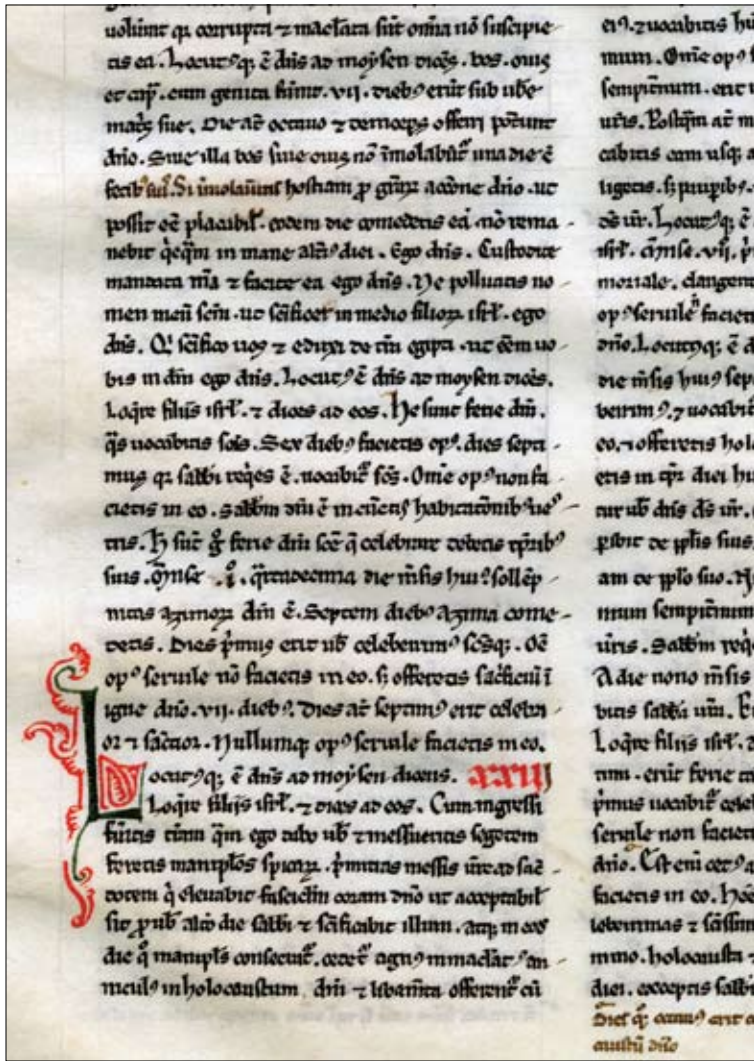 uolunt qꝛ corrupta ⁊ maclata sūt om̄ia nō suscipie
tis ea. Locutꝰqꝫ ē dn̄s ad moysen dicēs. bos. ouis
et cap̄. cum genita fuint. vii. diebꝰ erūt sub ube
matꝭ sue. Die aūt octauo ⁊ deinceps offerri potunt
dn̄o. Siue illa bos siue ouis nō īmolabūt una die ē
fetibꝰ suis. Si īmolaūitis hostiam ꝓ grāꝝ actōne dn̄o. ut
possit eē placabił. eodem die comedetis eā. nō rema
nebit qͥcqͣm in mane altiꝰ diei. Ego dn̄s. Custodite
mandata m̄a ⁊ facite ea ego dn̄s. Ne polluatis no
men meū scm̄. ut scīficer in medio filioꝝ isrł. ego
dn̄s. Qͥ scīfico uos ⁊ eduxi de tr̄a egipti. ut eēm uo
bis in dm̄ ego dn̄s. Locutꝰ ē dn̄s ad moysen dicēs.
Loqͥre filiis isrł. ⁊ dices ad eos. He sunt ferie dn̄i.
qͣs uocabitis scās. Sex diebꝰ facietis opꝰ. dies septi
mus qꝛ sabbi reqͥes ē. uocabit᷑ scs̄. Om̄e opꝰ non fa
cietis in eo. Sabbm̄ dn̄i ē in cūctis habitatōnibꝰ ue
tris. H̄ sūt g̊ ferie dn̄i scē q̄ celebrare debetis tp̄ibꝰ
suis. Mn̄se .i. qͣrtadecima die mn̄sis huiꝰ sollēp
nitas azimoꝝ dn̄i ē. Septem diebꝰ azima come
detis. Dies pͥmus erit uob̄ celeberrimꝰ scs̄qꝫ. Oē
opꝰ seruile nō facietis in eo. sꝫ offeretis sacͥficiū ī
igne dn̄o. vii. diebꝰ. Dies aūt septimꝰ erit celebri
or ⁊ sāctior. Nullumqꝫ opꝰ seruile facietis in eo.
Locutꝰqꝫ ē dn̄s ad moysen dicens. XXIII
Loqͥre filijs isrł. ⁊ dices ad eos. Cum ingressi
fūitis tr̄am qͣm ego dabo uob̄ ⁊ messueritis segetem
feretis maniplos spicaꝝ. pͥmitias messis ur̄e ad sac
dotem qͥ eleuabit fascicłm coram dn̄o ut acceptabił
sit ꝓ uob̄ alto die sabbi ⁊ scīficabit illum. atqꝫ in eo
die qͦ manipls̄ consecrat᷑. cedet᷑ agnꝰ inmaclatꝰ an
niculꝰ in holocaustum dn̄i ⁊ libamīta offerent᷑ cū
eiꝰ. ⁊ uocabitis
mum. Om̄e opꝰ
sempit̄num. erit
ur̄is. Postqͣm aūt
cabitis eam usqꝫ
ligetis. sꝫ paupibꝰ.
ds̄ ur̄. Locutꝰqꝫ ē
isrł. Mn̄se. vii.
moriale. clangent
opꝰ seruile n̄ faciet
dn̄o. Locutꝰqꝫ ē
die mn̄sis huiꝰ sep
berrimꝰ. ⁊ uocabit
eo. ⁊ offeretis hol
etis in tp̄r diei hu
tur uob̄ dn̄s ds̄ ur̄.
ꝑibit de pp̄lis suis.
am de pp̄lo suo.
imum sempit̄num
ur̄is. Sabbm̄ reqͥ
A die nono mn̄sis
bitis sabba ur̄a.
Loqͥre filijs isrł.
pͥmus uocabit᷑ celeb
seruile non faciet
dn̄o. Est eni cetꝰ
facietis in eo. Hee
leberrimas ⁊ sc̄issim
holocausta
diei. exceptis sabb
Dies qͦꝫ octauꝰ erit
caustū dn̄o